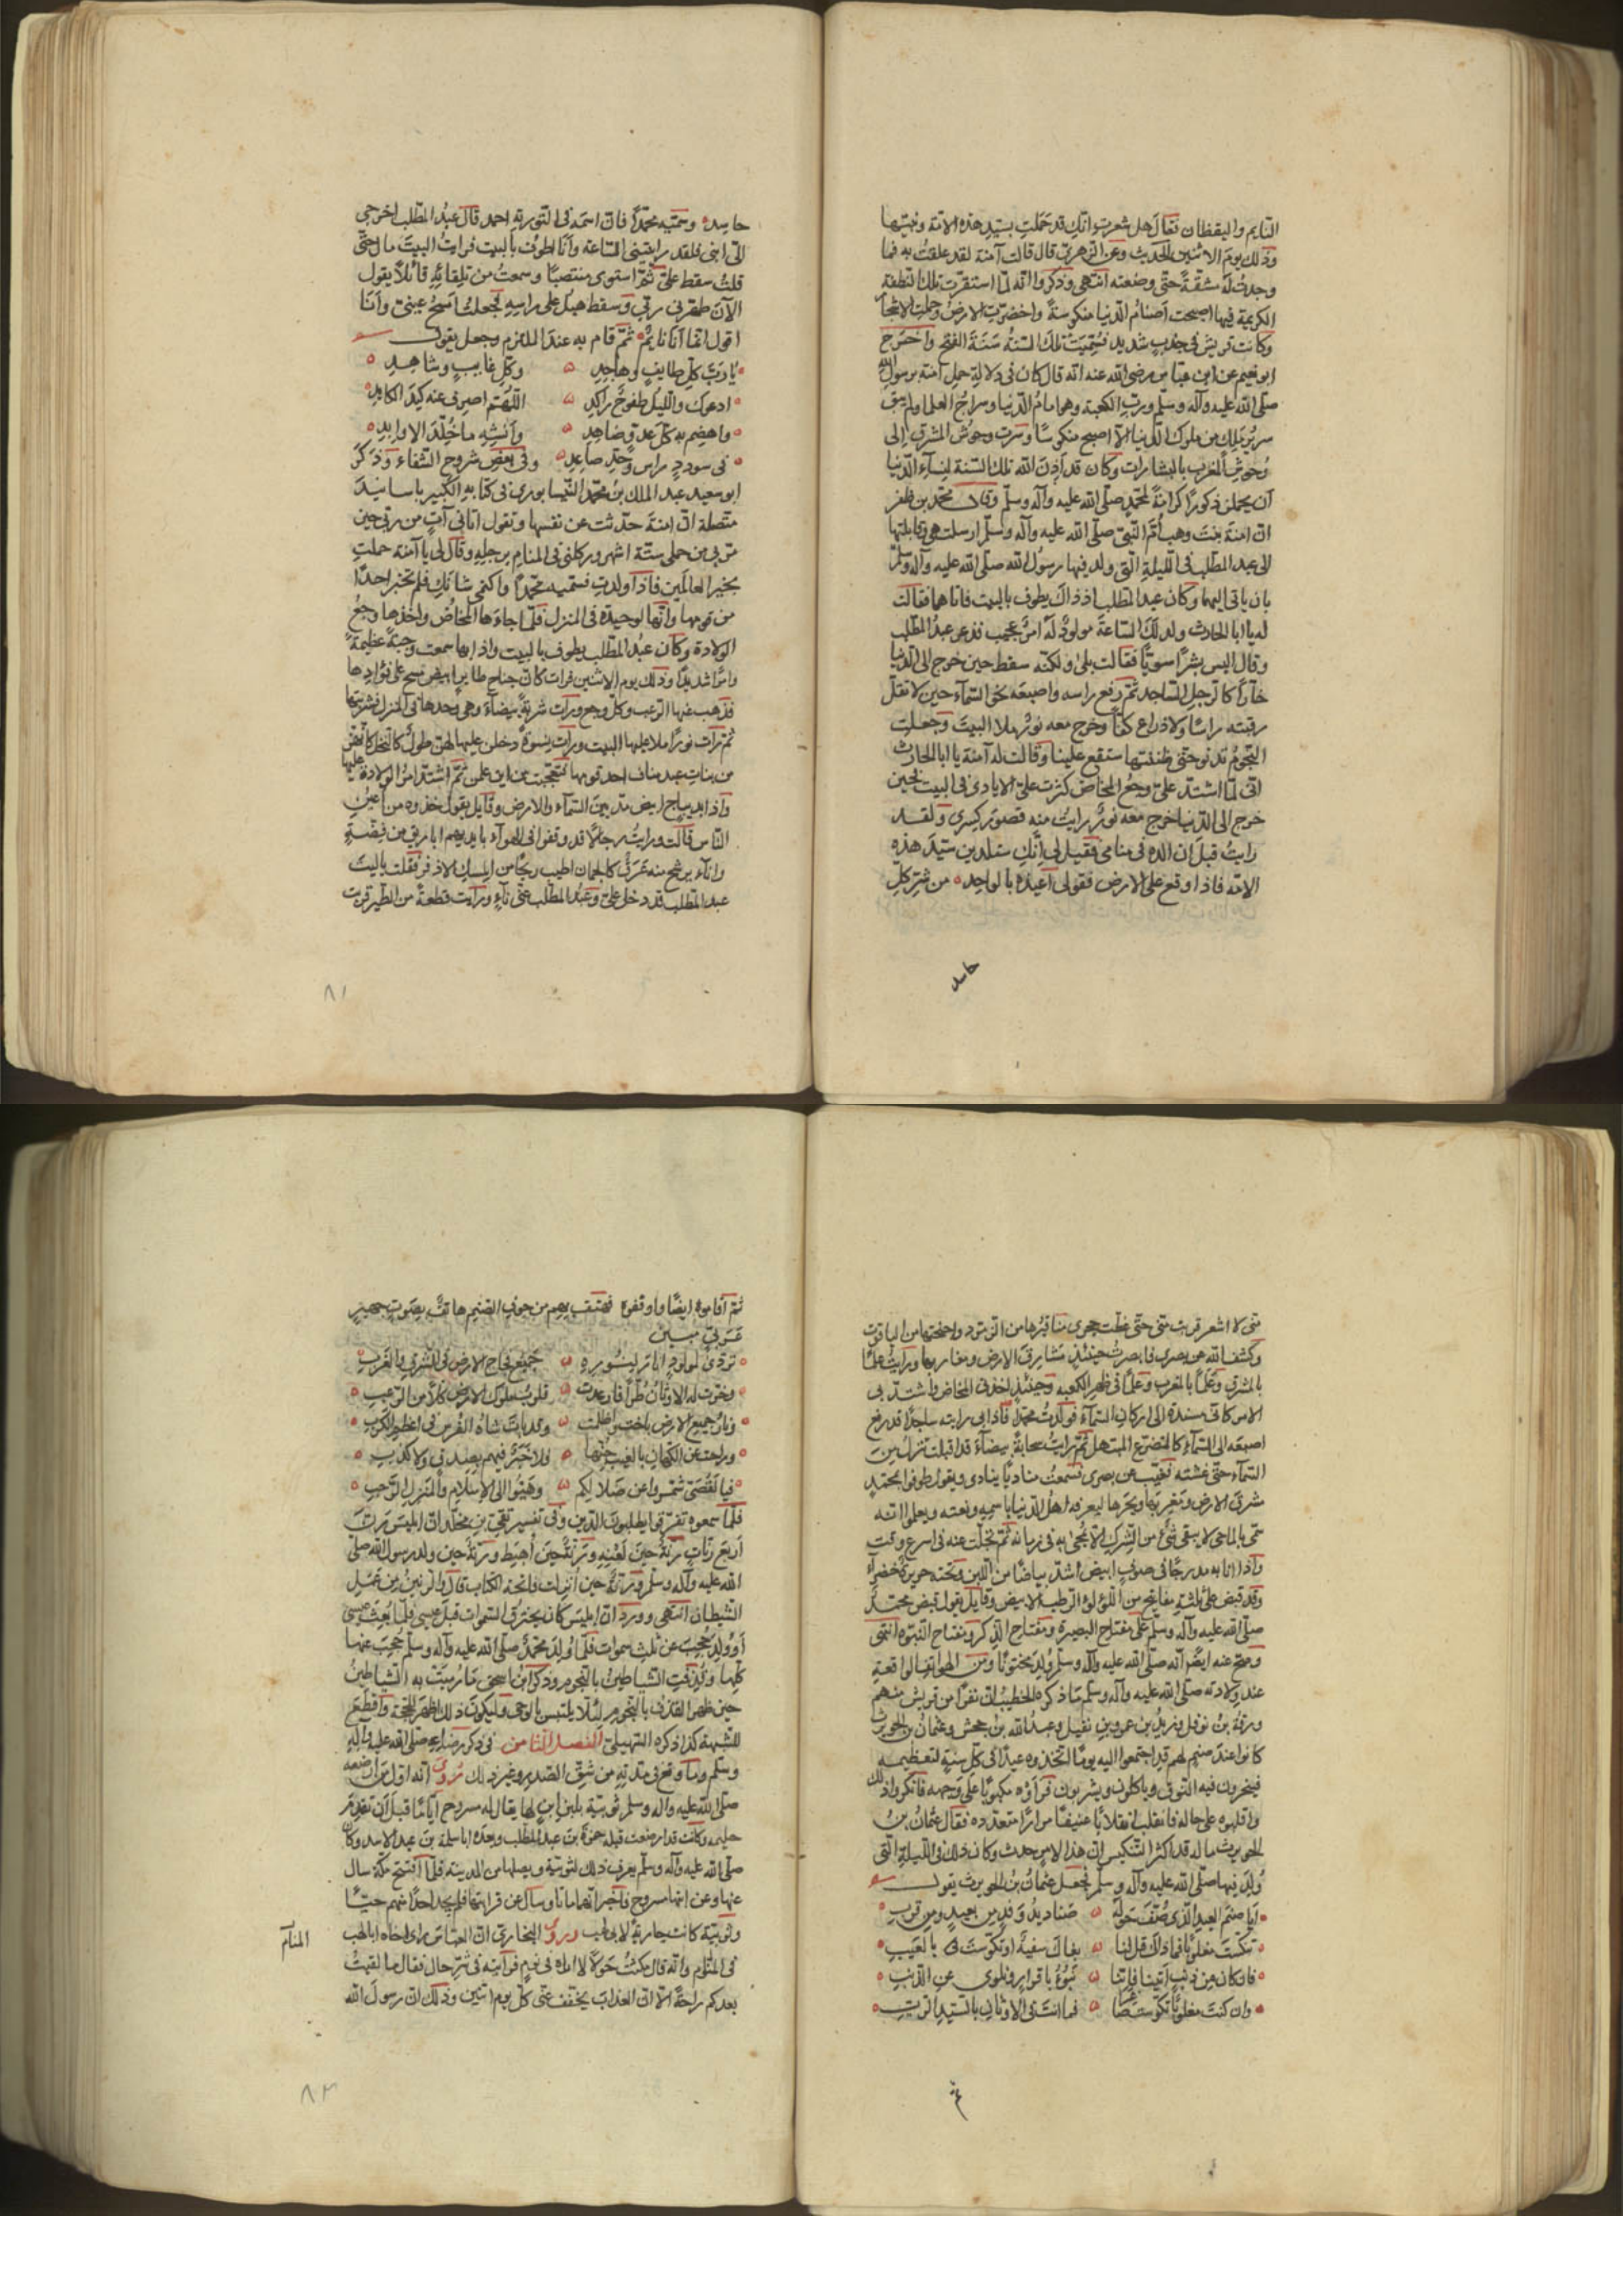 النايم واليقظان فقال هل شعرت انك قد حملت بسيد هذه الامة ونبيها
وذلك يوم الاثنين الحديث وعن الزهري قال قالت آمنة لقد علقت به فما
وجدت له مشقة حتى وضعته انتهى وذكروا انه لما استقرت تلك النطفة
الكريمة فيها اصبحت اصنام الدنيا منكوسة واخضرت الارض وحملت الاشجار
وكانت قريش في جدب شديد فسميت تلك السنة سنة الفتح واخرج
ابو نعيم عن ابن عباس رضي الله عنه انه قال كان في دلالة حمل آمنة برسول الله
صلى الله عليه وآله وسلم ورب الكعبة وهو امام الدنيا وسراج اهلها ولم يبق
سرير ملك من ملوك الدنيا الا اصبح منكوسا ومرت وحوش المشرق الى
وحوش المغرب بالبشارات وكان قد اذن الله تلك السنة لنساء الدنيا
ان يحملن ذكورا كرامة لمحمد صلى الله عليه وآله وسلم وقال محمد بن ظفر
ان امنة بنت وهب ام النبي صلى الله عليه وآله وسلم ارسلت هي وقابلتها
الى عبد المطلب في الليلة التي ولد فيها رسول الله صلى الله عليه وآله وسلم
بان ياتي اليها وكان عبد المطلب اذ ذاك يطوف بالبيت فاتاهما فقالت
له يا ابا الحارث ولد لك الساعة مولود له امر عجيب فذعر عبد المطلب
وقال اليس بشرا سويا فقالت بلى ولكنه سقط حين خرج الى الدنيا
خارا كالرجل الساجد ثم رفع راسه واصبعه نحو السماء حين لا تقل
رقبته راسا ولا ذراع كفا وخرج معه نور ملا البيت وجعلت
النجوم تدنو حتى ظننتها ستقع علينا وقالت له آمنة يا ابا الحارث
اني لما اشتد علي وجع المخاض كثرت علي الايادي في البيت فحين
خرج الى الدنيا خرج معه نور رايت منه قصور كسرى ولقد
رايت قبل ان الده في منامي فقيل لي انك ستلدين سيد هذه
الامة فاذا وقع على الارض فقولي اعيذه بالواحد من شر كل
حاسد
حاسد وسميه محمدا فان اسمه في التورية احمد قال عبد المطلب اخرجي
الي ابني فلقد رايتني الساعة وانا اطوف بالبيت فرايت البيت مال حتى
قلت سقط علي ثم استوى منتصبا وسمعت من تلقائه قائلا يقول
الآن طهرني ربي وسقط هبل على راسه فجعلت امسح عيني وانا
اقول انما انا نايم ثم قام به عند الملتزم وجعل يقول
يا رب كل طايف وهاجد وكل غايب وشاهد
ادعوك والليل طفوح راكد اللهم اصرف عنه كيد الكايد
واهضم به كل عدو ضاهد وانشه ما خلد الاوابد
في سودد راس وجد صاعد وفي بعض شروح الشفاء وذكر
ابو سعيد عبد الملك بن محمد النيسابوري في كتابه الكبير باسانيد
متصلة ان امنة حدثت عن نفسها وتقول اتاني آت من ربي حين
مر بي من حملي ستة اشهر وركلني في المنام برجله وقال لي يا آمنة حملت
بخير العالمين فاذا ولدت فسميه محمدا واكتمي شانك فلم تخبر احدا
من قومها وانها لوحيدة في المنزل فلما جاءها المخاض واخذها وجع
الولادة وكان عبد المطلب يطوف بالبيت واذا بها سمعت وجبة عظيمة
وامرا شديدا وذلك يوم الاثنين فرات كان جناح طاير ابيض مسح على فؤادها
فذهب عنها الرعب وكل وجع ورات شربة بيضاء وهي وحدها في المنزل فشربتها
ثم رات نورا ملا عليها البيت ورات نسوة دخلن عليها لهن طول كالنخل كانهن
من بنات عبد مناف احد قومها فتعجبت من اين علمن ثم اشتد امر الولادة عليها
واذا بديباج ابيض مد بين السماء والارض وقايل يقول خذوه من اعين
الناس قالت ورايت رجالا قد وقفوا في الهواء بايديهم اباريق من فضة
وانا يرشح منه عرق كالجمان اطيب ريحا من المسك الاذفر فقلت ياليت
عبد المطلب قد دخل علي وعبد المطلب عني ناء ورايت قطعة من الطير قربت
٨١
مني لا اشعر قربت مني حتى غطت حجرى مناقيرها من الزمرد واجنحتها من الياقوت
وكشف الله عن بصري فابصرت حينئذ مشارق الارض ومغاربها ورايت علما
بالمشرق وعلما بالمغرب وعلما في ظهر الكعبه وحينئذ اخذني المخاض واشتد بي
الامر كاني مسندة الى اركان السماء فولدت محمدا فاذا بي رايته ساجدا قد رفع
اصبعه الى السماء كالمتضرع المبتهل ثم رايت سحابة بيضاء قد اقبلت تنزل من
السماء حتى غشته فغيب عن بصري فسمعت مناديا ينادي ويقول طوفوا بمحمد
شرق الارض ومغربها وبحرها ليعرفه اهل الدنيا باسمه ونعته ويعلموا انه
سمي بالماحي لا يبقى شيء من الشرك الا يمحى به في زمانه ثم تجلت عنه في اسرع وقت
واذا انا به مدرجا في صوف ابيض اشد بياضا من اللبن وتحته حريرة خضراء
وقد قبض على ثلثة مفاتيح من اللؤلؤ الرطب الابيض وقايل يقول قبض محمد
صلى الله عليه وآله وسلم على مفتاح البصيرة ومفتاح الذكر ومفتاح النبوه انتهى
وصح عنه ايضا انه صلى الله عليه وآله وسلم ولد مختونا ومن الهواتف الواقعة
عند ولادته صلى الله عليه وآله وسلم ما ذكره الخطيب ان نفرا من قريش منهم
ورقة بن نوفل وزيد بن عمرو بن نفيل وعبد الله بن جحش وعثمان بن الحويرث
كانوا عند صنم لهم قد اجتمعوا اليه يوما اتخذوه عيدا في كل سنة لتعظيمه
فينحرون فيه النوق وياكلون ويشربون فراوه مكبوبا على وجهه فانكروا ذلك
واقلبوه على حاله فانقلب انقلابا عنيفا مرارا متعدده فقال عثمان بن
الحويرث ماله قد اكثر التنكيس ان هذا الامر حدث وكان ذلك في الليلة التي
ولد فيها صلى الله عليه وآله وسلم فجعل عثمان بن الحويرث يقول
ايا صنم العيد الذي صف حوله صناديد وفد من بعيد ومن قرب
تنكست مغلوبا فما ذاك قل لنا بغاك سفيه او تنكوست بالعيب
فان كان من ذنب اتينا فاننا نبوء باقرار ونلوي عن الذنب
وان كنت مغلوبا تنكوست صاغرا فما انت في الاوثان بالسيد الرب
ثم
ثم اقاموه ايضا واوقفوه فهتف بهم من جوف الصنم هاتف بصوت جهير
عربي مبين
تردى لمولود انارت بنوره جميع فجاج الارض في الشرق والغرب
وخرت له الاوثان طرا وارعدت قلوب ملوك الارض كلا من الرعب
ونار جميع الارض باخت واظلمت وقد بات شاه الفرس في اعظم الكرب
وراحت عن الكهان بالغيب جنها ولا خبر فيهم بصدق ولا كذب
فيا لقصي شمروا عن ضلالكم وهبوا الى الاسلام والمنزل الرحب
فلما سمعوه تفرقوا يطلبون الدين وفي تفسير بقي بن مخلد ان ابليس رن
اربع رنات رنة حين لعنه ورنة حين اهبط ورنة حين ولد رسول الله صلى
الله عليه وآله وسلم ورنة حين انزلت فاتحة الكتاب قال والرنين من عمل
الشيطان انتهى وورد ان ابليس كان يخترق السموات قبل عيسى فلما بعث عيسى
او ولد حجب عن ثلث سموات فلما ولد محمد صلى الله عليه وآله وسلم حجب عنها
كلها وقذفت الشياطين بالنجوم وذكر ابن اسحق ما رميت به الشياطين
حين ظهر القذف بالنجوم لئلا يلتبس بالوحي وليكون ذلك اظهر للحجة واقطع
للشبهة كذا ذكره السهيلي الفصل الثامن في ذكر رضاعه صلى الله عليه وآله
وسلم وما وقع في مدته من شق الصدر وغير ذلك روي انه اول من ارضعه
صلى الله عليه وآله وسلم ثويبة بلبن ابن لها يقال له مسروح اياما قبل ان تقدم
حليمه وكانت قد ارضعت قبله حمزة بن عبد المطلب وبعده ابا سلمة بن عبد الاسد وكان
صلى الله عليه وآله وسلم يعرف ذلك لثويبة ويصلها من المدينه فلما افتتح مكة سال
عنها وعن ابنها مسروح فاخبر انهما ماتا وسال عن قرابتها فلم يجد احدا منهم حيا
وثويبة كانت جارية لابي لهب وروى البخاري ان العباس راى اخاه ابا لهب
المنام
في المنام وانه قال مكثت حولا لا اراه في نوم فرايته في شر حال فقال ما لقيت
بعدكم راحة الا ان العذاب يخفف عني كل يوم اثنين وذلك ان رسول الله
٨٢